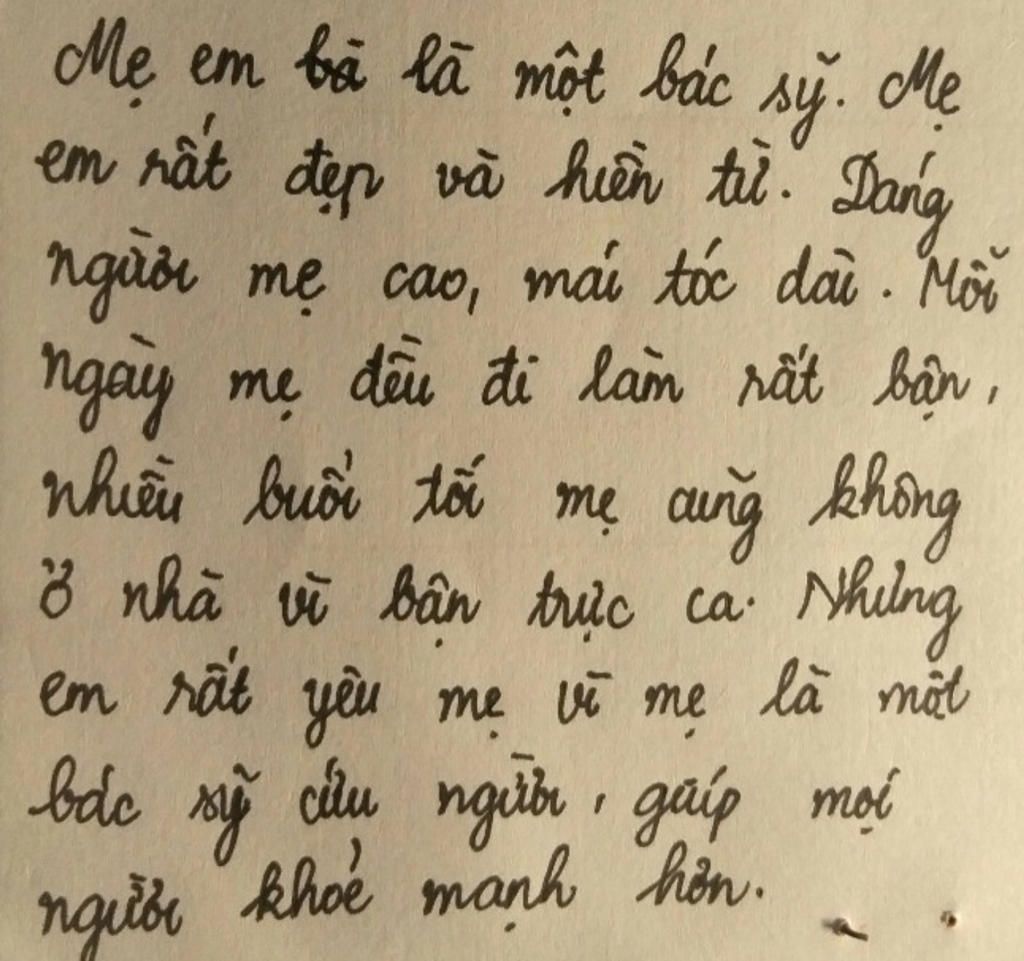 Mẹ em là một bác sỹ. Mẹ
em rất đẹp và hiền từ. Dáng
người mẹ cao, mái tóc dài. Mỗi
ngày mẹ đều đi làm rất bận,
nhiều buổi tối mẹ cũng không
ở nhà vì bận trực ca. Nhưng
em rất yêu mẹ vì mẹ là một
bác sỹ cứu người, giúp mọi
người khoẻ mạnh hơn.